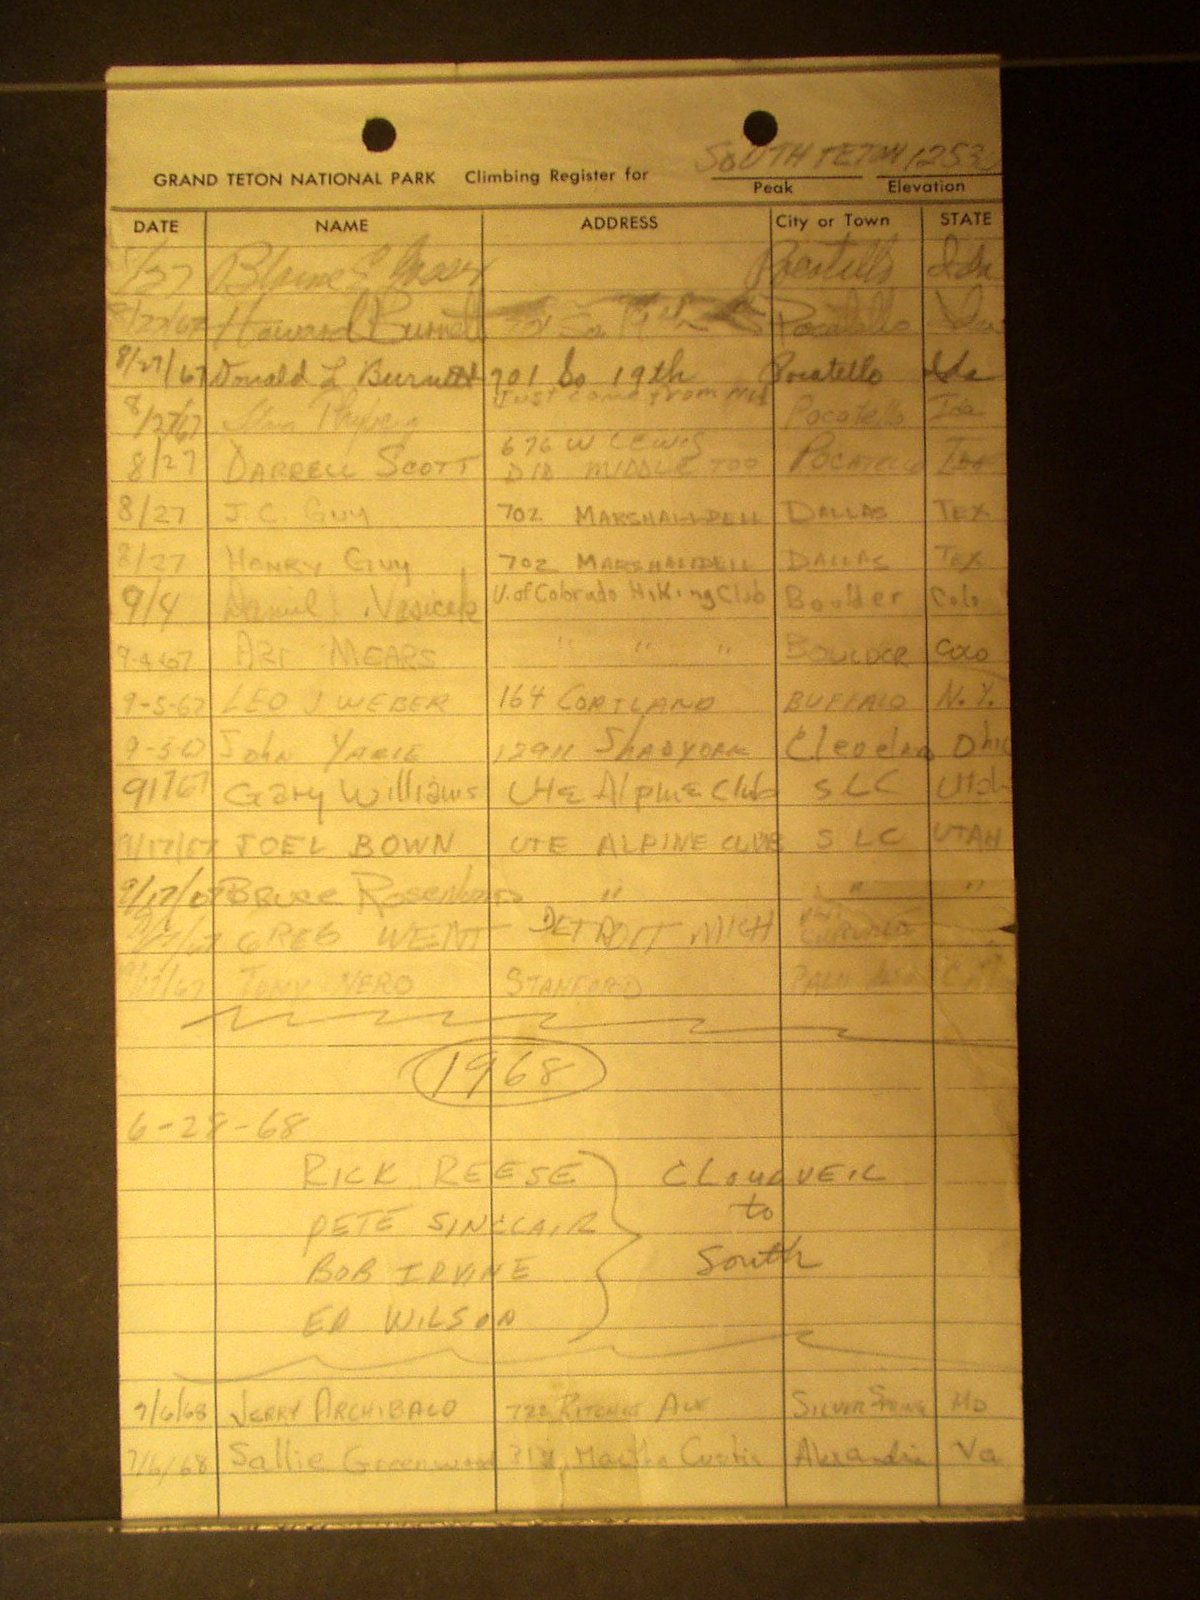 SOUTH TETON 1253
GRAND TETON NATIONAL PARK Climbing Register for Peak Elevation
DATE NAME ADDRESS City or Town STATE
/27 Blaine Pocatello Ida
8/27/67 Howard Burnett So 19th Pocatello Ida
8/27/67 Donald L Burnett 701 So 19th Pocatello Ida
8/27/67 Just came from Mid Pocatello Ida
8/27 DARRELL SCOTT 676 W LEWIS DID MIDDLE TOO POCATELLO IDA
8/27 J.C. GUY 702 MARSHALLDELL DALLAS TEX
8/27 HENRY GUY 702 MARSHALLDELL DALLAS TEX
9/4 Daniel Vasicek U. of Colorado Hiking Club Boulder Colo
9-4-67 ART MEARS " " " BOULDER COLO
9-5-67 LEO J WEBER 164 CORTLAND BUFFALO N.Y.
John Cleveland Ohio
9/17/67 Gary Williams Ute Alpine Club SLC Utah
9/17/67 JOEL BOWN UTE ALPINE CLUB SLC UTAH
9/17/67 Bruce " " "
GREG WENT DETROIT MICH
TONY NERO STANFORD PALO
1968
6-28-68
RICK REESE CLOUDVEIL
PETE SINCLAIR to
BOB IRVINE South
ED WILSON
7/6/68 JERRY ARCHIBALD 722 AVE SILVER SPRING MD
7/6/68 Sallie Greenwood Martha Custis Alexandria Va